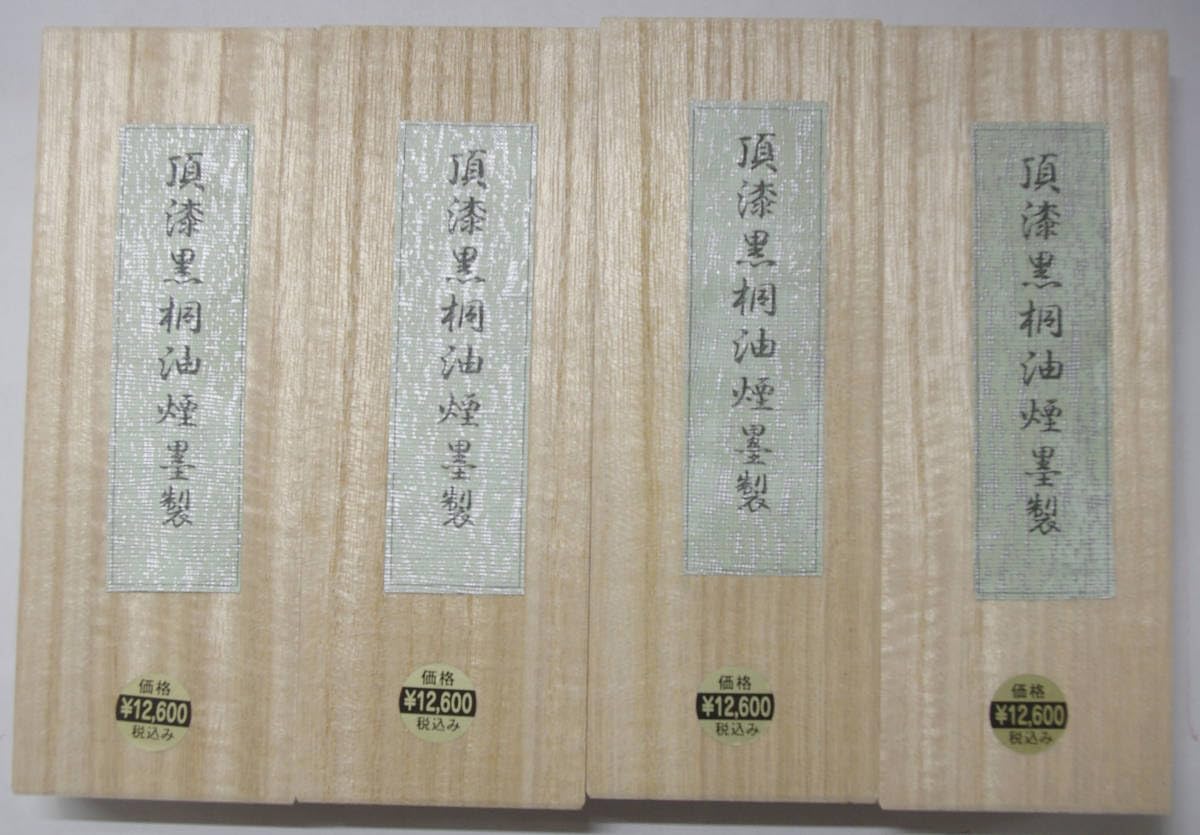 頂漆黒桐油煙墨製
価格
¥12,600
税込み
頂漆黒桐油煙墨製
価格
¥12,600
税込み
頂漆黒桐油煙墨製
価格
¥12,600
税込み
頂漆黒桐油煙墨製
価格
¥12,600
税込み